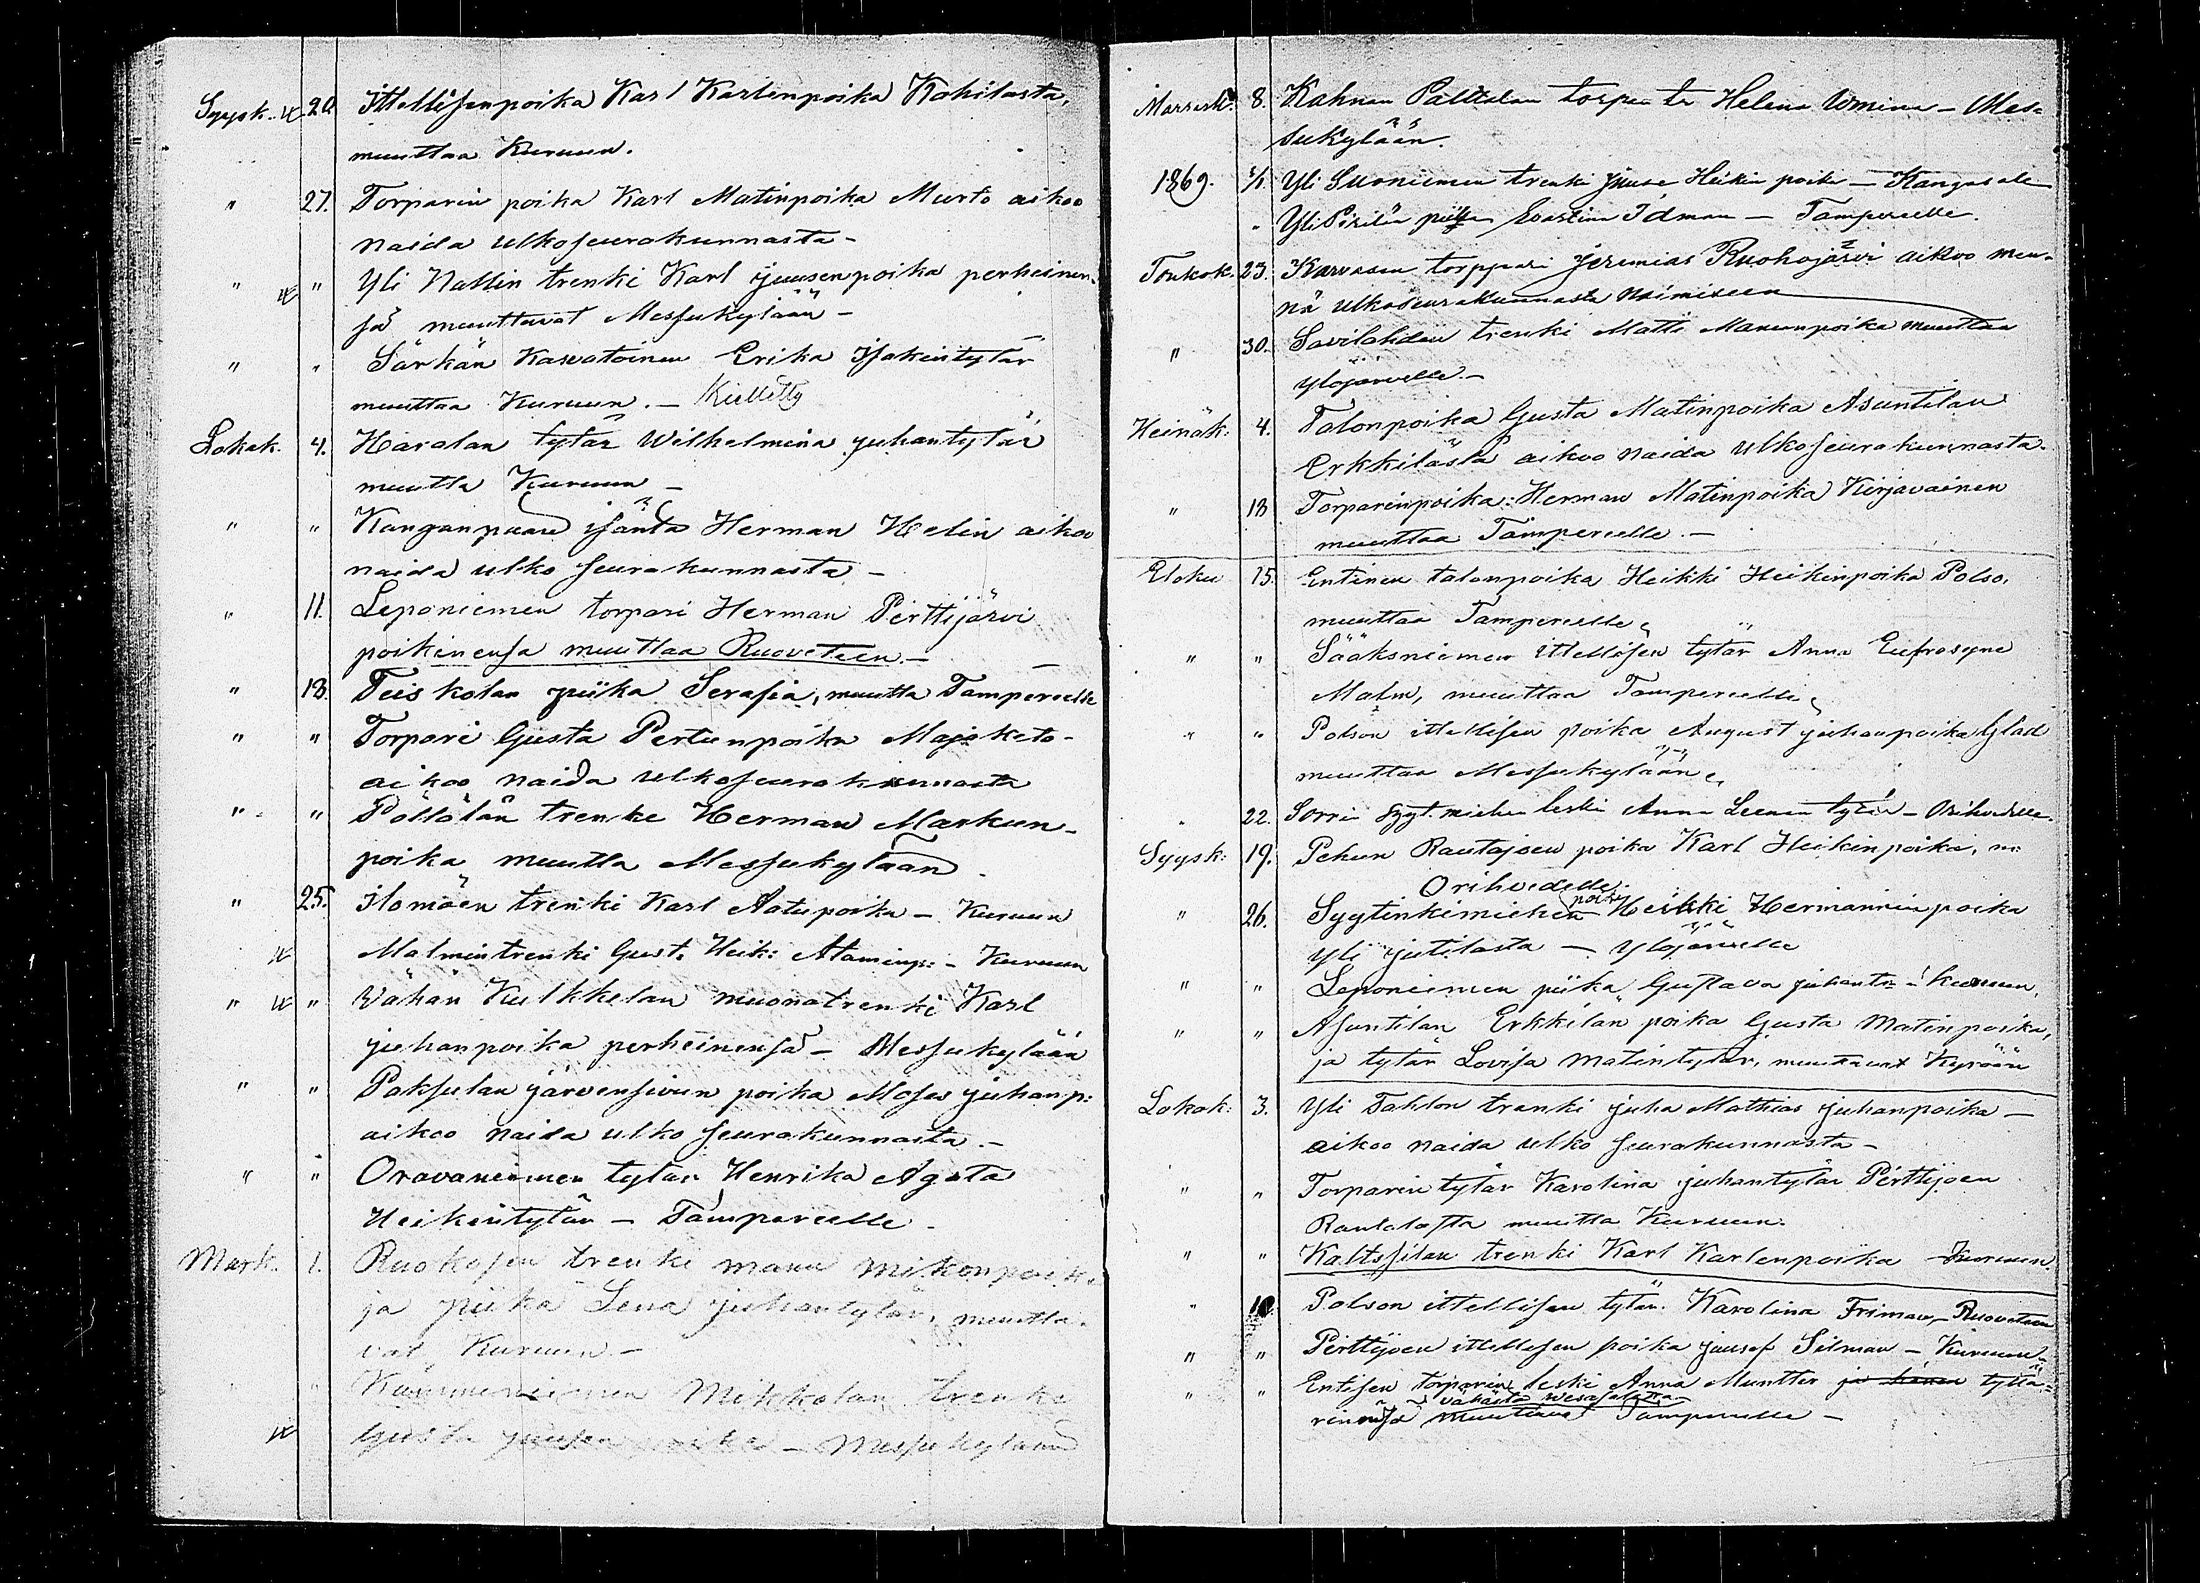 Syysk. 20. Ittellisenpoika Karl Karlenpoika Kohilasta,
muuttaa Kuruun.
" 27. Torparin poika Karl Matinpoika Murto aikoo
naida ulkoseurakunnasta -
" " Yli Nallin trenki Karl Juusenpoika perheinen-
sä muuttavat Messukylään -
" " Särkän Kasvatoinen Erika Isakintytär
muuttaa Kuruun. - Kielletty
Lokak. 4. Haralan tytär Wilhelmina juhantytär
muutta Kuruun -
" " Kanganpään isäntä Herman Helin aikoo
naida ulko seurakunnasta -
" 11. Leponiemen torpari Herman Perttijärvi
poikinensa muuttaa Ruoveteen. -
" 18. Teiskolan piika Serafia, muutta Tampereelle
" " Torpari Gusta Pertunpoika Majaketo -
aikoo naida ulkoseurakunnasta
" " Pöllölän trenke Herman Markun-
poika muutta Messukylään.
" 25. Ilomäen trenki Karl Aatupoika - Kuruun
Malmin trenki Gust. Heik: Ataminp: - Kuruun
" " Wähän Kulkkelan muonatrenki Karl
juhanpoika perheinensä - Messukylään
" " Paksulan järvensivun poika Moses juhanp:
aikoo naida ulko seurakunnasta. -
" " Oravaniemen tytär Henrika Agata
Heikintytär - Tampereelle -
Mark. 1. Ruokosen trenki manu Mikonpoik.
ja piika Lena juhantytär, muutta-
vat, Kuruun -
" Kämmenniemen Mikkolan trenke
Gusta juusenpoika - Messukylään
Marrask. 8. Kahnan Palttalan torpan tr Helena - Mes-
sukylään.
1869. 2/1. Yli Suoniemen trenki Juuse Heikin poika - Kangasale
" Yli Pirilän piika Evastina Idman - Tampereelle.
Toukok. 23. Karvasen torppari Jeremias Ruohojärvi aikoo men-
nä ulkoseurakunnasta Naimiseen
" 30. Savilahden trenki Matti Manunpoika muuttaa
Ylöjärvelle. -
Heinäk: 4. Talonpoika Gusta Matinpoika Asuntilan
Erkkilästä aikoo naida ulkoseurakunnasta.
" 18 Torparinpoika: Herman Matinpoika Kirjavainen
muuttaa Tampereelle. -
Eloku 15. Entinen talonpoika Heikki Heikinpoika Polso,
muuttaa Tampereelle
" " Sääksniemen ittellisen tytär Anna Eufrosyne
Malm, muuttaa Tampereelle
" " Polson ittellisen poika August juhanpoika Glad
muuttaa Messukylään
" 22. Sorrin sygt. miehen leski Anna Leenan tytär - Orihvedelle.
Syysk: 19. Pekun Rautajoen poika Karl Heikinpoika, m:
Orihvedelle.
" 26. Sygtinkimiehen poika Heikki Hermannin poika
Yli jutilasta - Ylöjärvelle
" " Leponiemen piika Gustava juhantr - Kuruun,
" " Asuntilan Erkkilan poika Gusta Matinpoika,
ja tytär Lovisa Matintytär, muuttavat Kyröön
Lokak. 3. Yli Tahlon trenki juha Mathias juhanpoika -
aikoo naida ulko seurakunnasta -
" " Torparin tytär Karolina juhantytär Perttijoen
Rantalasta muutta Kuruun.
" " Kaltssilan trenki Karl Karlenpoika - Kuruun.
" 10. Polson ittellisen tytär. Karolina Friman, - Ruoveteen
" " Perttijoen ittellesen poika juusef Silman - Kuruun -
" " Entisen torparin leski Anna Muntter ja hänen tyttä-
vähästä
rinensä muuttavat Tampereelle -